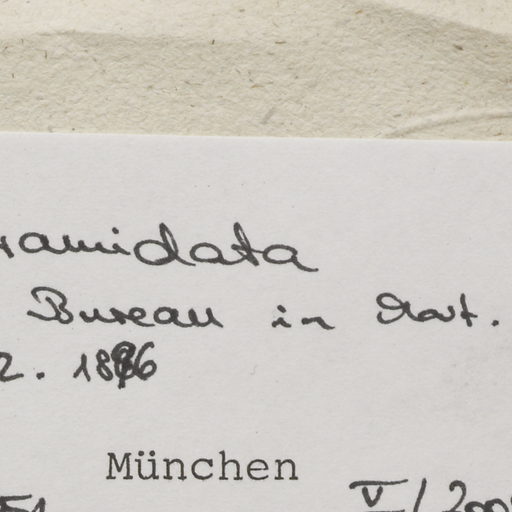 ramidata
Bureau in Mart.
2. 1896
München
51 V/200